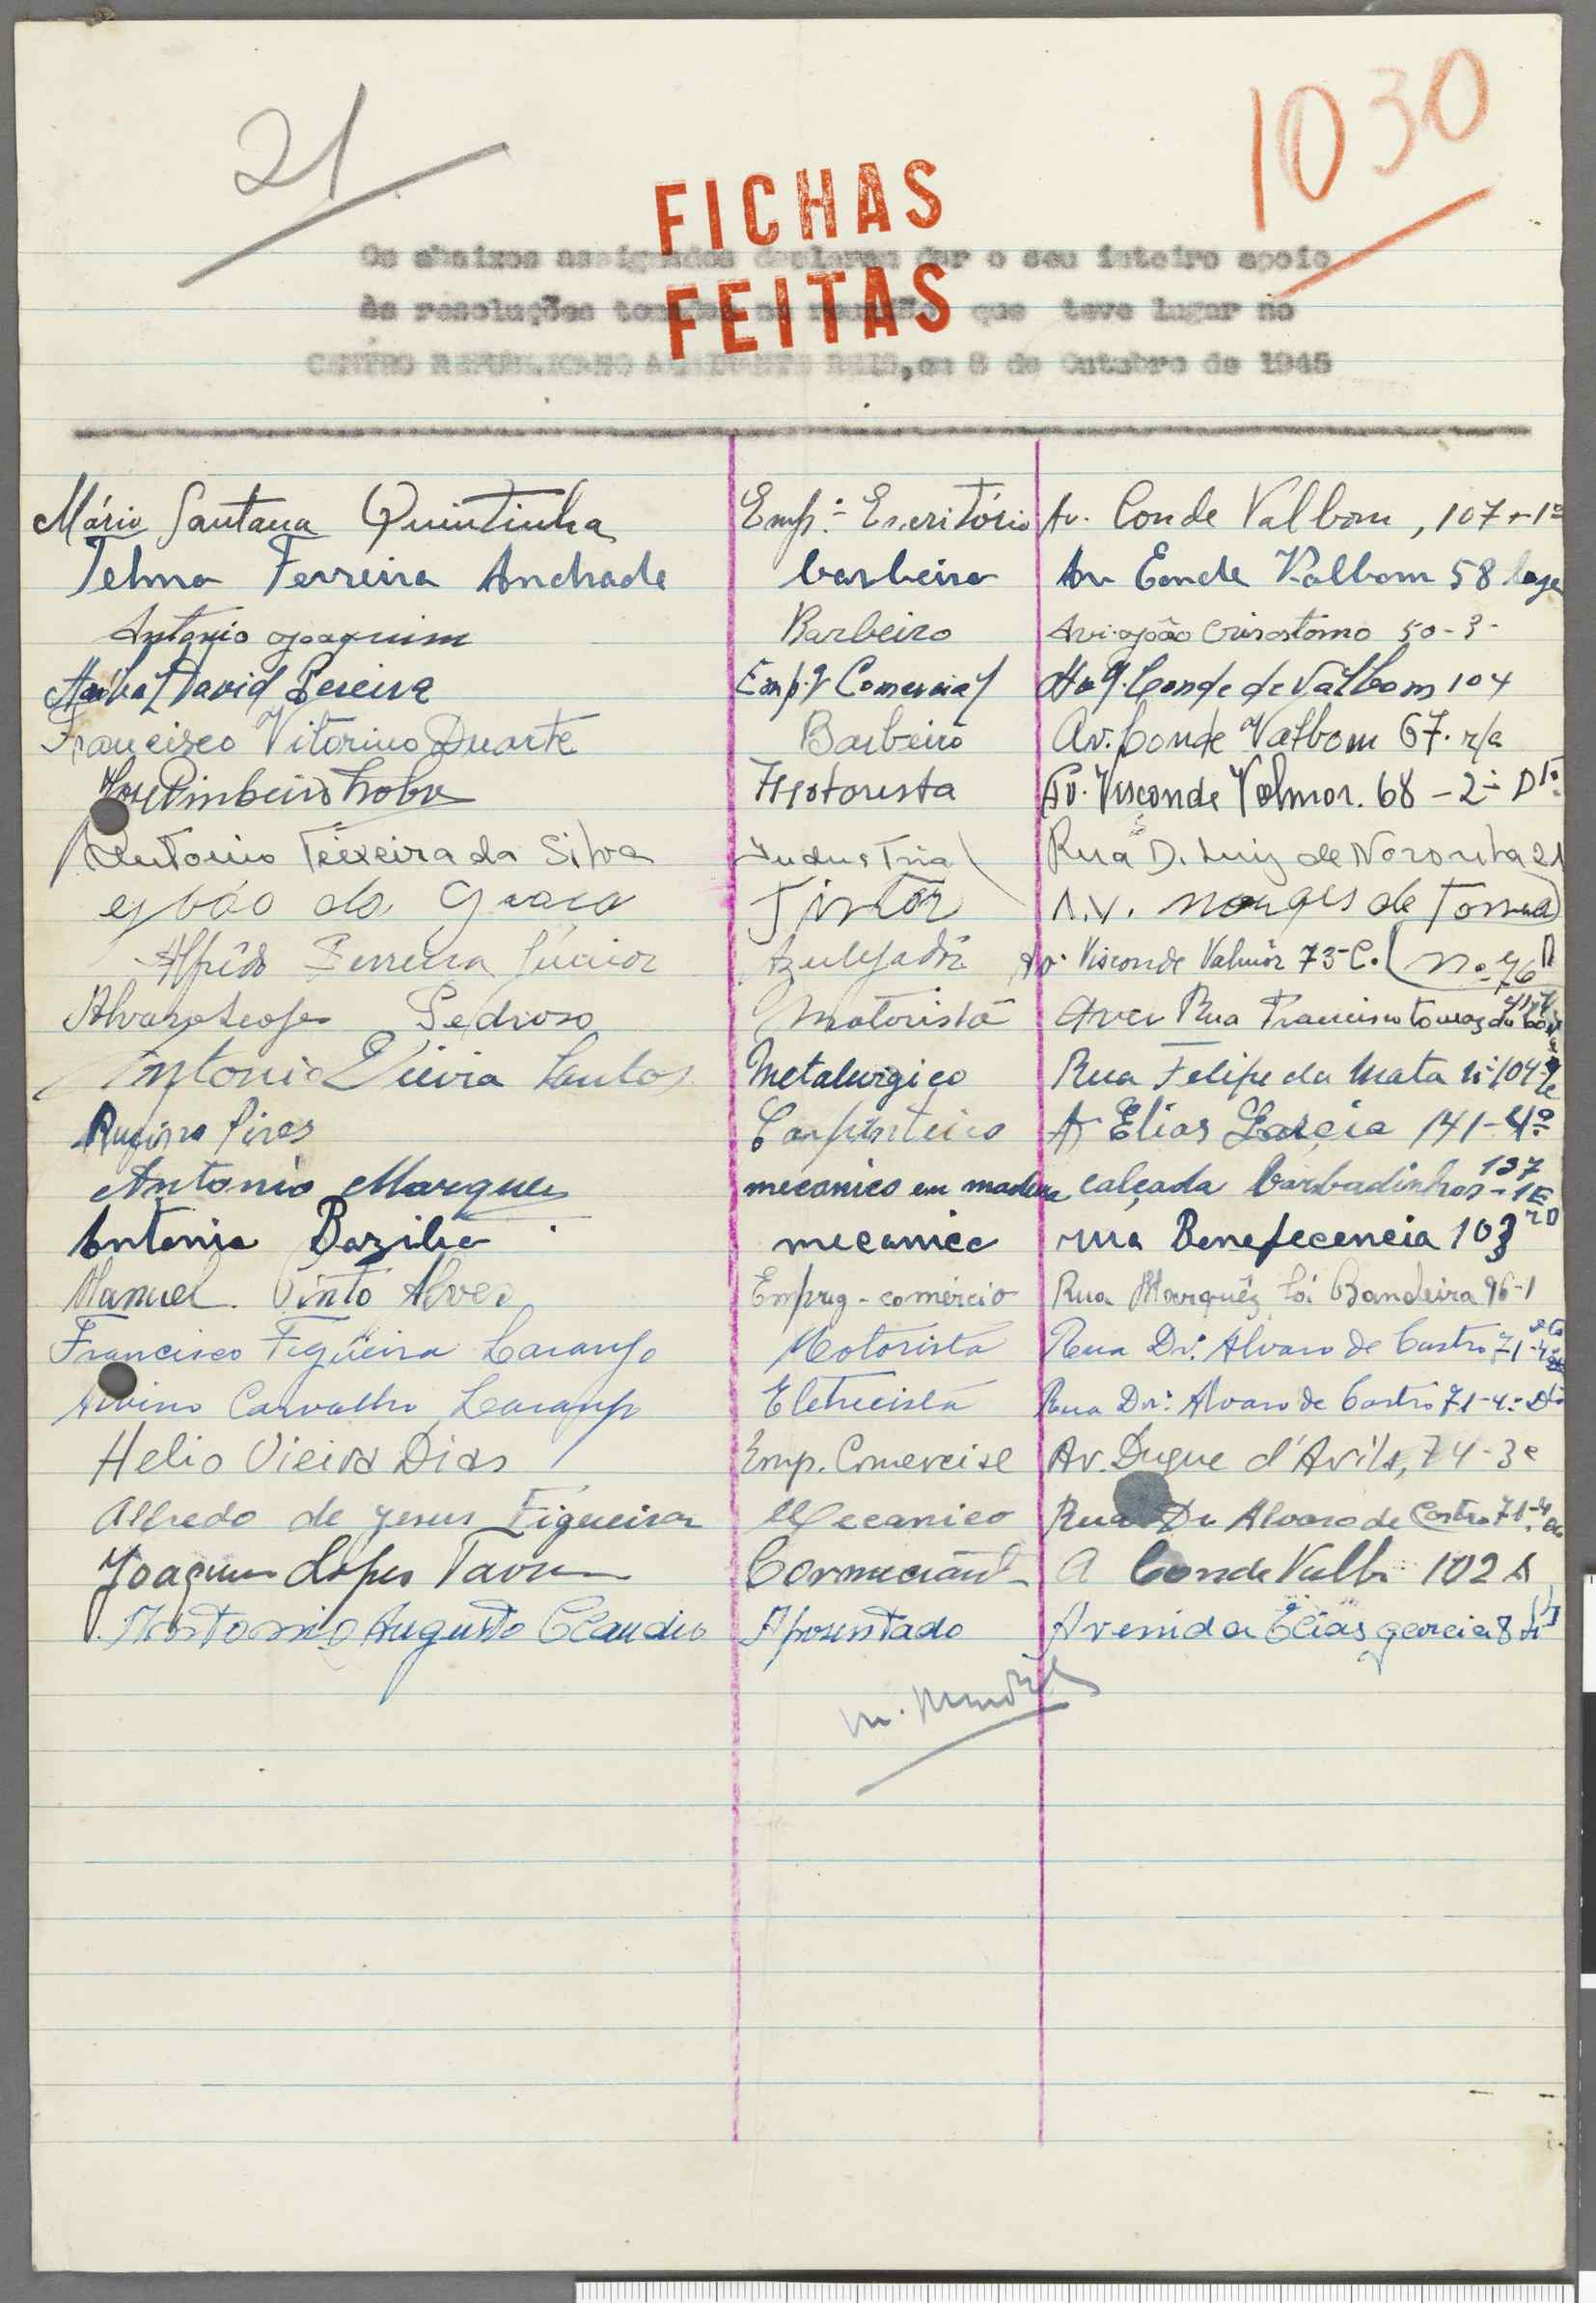 21
1030
FICHAS
FEITAS
Os abaixos assignados declaram dar o seu inteiro apoio
às resoluções tomadas na reunião que teve lugar no
CENTRO REPUBLICANO ALMIRANTE REIS, em 8 de Outubro de 1945
Mário Santana Quintinha Emp.º Escritório Av. Conde Valbom, 107-1º
Telmo Ferreira Andrade barbeiro Av Conde Valbom 58 loja
Antonio Joaquim Barbeiro Avi. João Crisostomo 50-3-
Anibal David Pereira Emp.º Comercial Av. Conde de Valbom 104
Francisco Vitorino Duarte Barbeiro Av. Conde Valbom 67. r/c
José Pinheiro Lobo Motorista Av. Visconde Valmor. 68-2º Dtº
Antonio Teixeira da Silva Industrial Rua D. Luiz de Noronha 21
João da Graça Pintor A.V. Marques de Tomar
Nº 76
Alfrêdo Ferreira Júnior Azulejador Av. Visconde Valmôr 73-C.
Alvaro Lopes Pedroso Motorista Rua Francisco Tomaz da Costa
Antonio Vieira Santos Metalurgico Rua Felipe da Mata 104
Rufino Pires Carpinteiro A. Elias Garcia 141-4º
Antonio Marques mecanico em madeira calçada barbadinhos 137-1E
Antonio Bazilio mecanico rua Benefecencia 103 r D
Manuel Pinto Alves Empreg-comércio Rua Marquês Sá Bandeira 96-1
Francisco Figueira Laranjo Motorista Rua Dr. Alvaro de Castro 71-4º
Carvalho Laranjo Eletricista Rua Dr. Alvaro de Castro 71-4º Dto
Helio Vieira Dias Emp. Comercial Av. Duque d'Avila, 74-3º
Alfredo de Jesus Figueira Mecanico Rua Dr Alvaro de Castro 71-4
Joaquim Lopes Comerciante A Conde Valbom 102 A
Antonio Augusto Claudio Aposentado Avenida Elias garcia 8